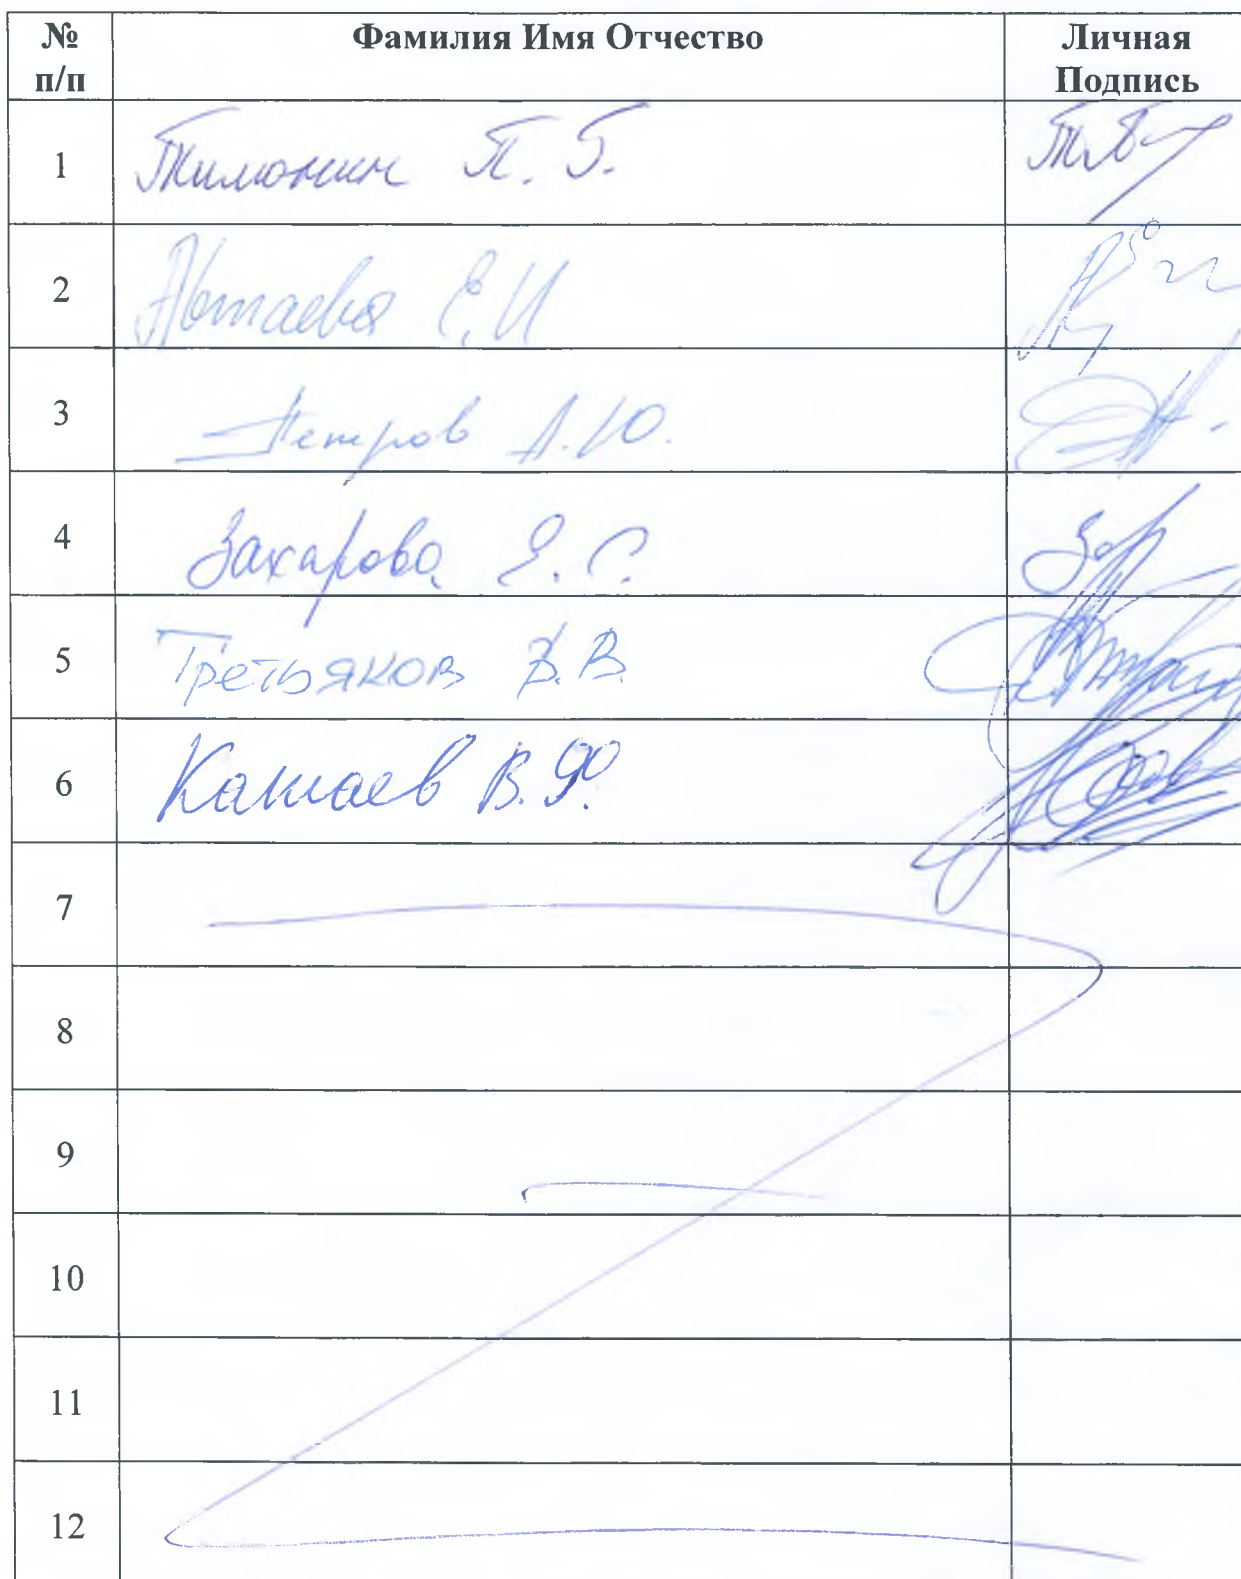 № п/п Фамилия Имя Отчество Личная Подпись
1 Тимонин П. Г.
2 Е. И
3 Петров А. Ю.
4 Захарова Е. С.
5 Третьяков В. В.
6 В. Ю.
7
8
9
10
11
12